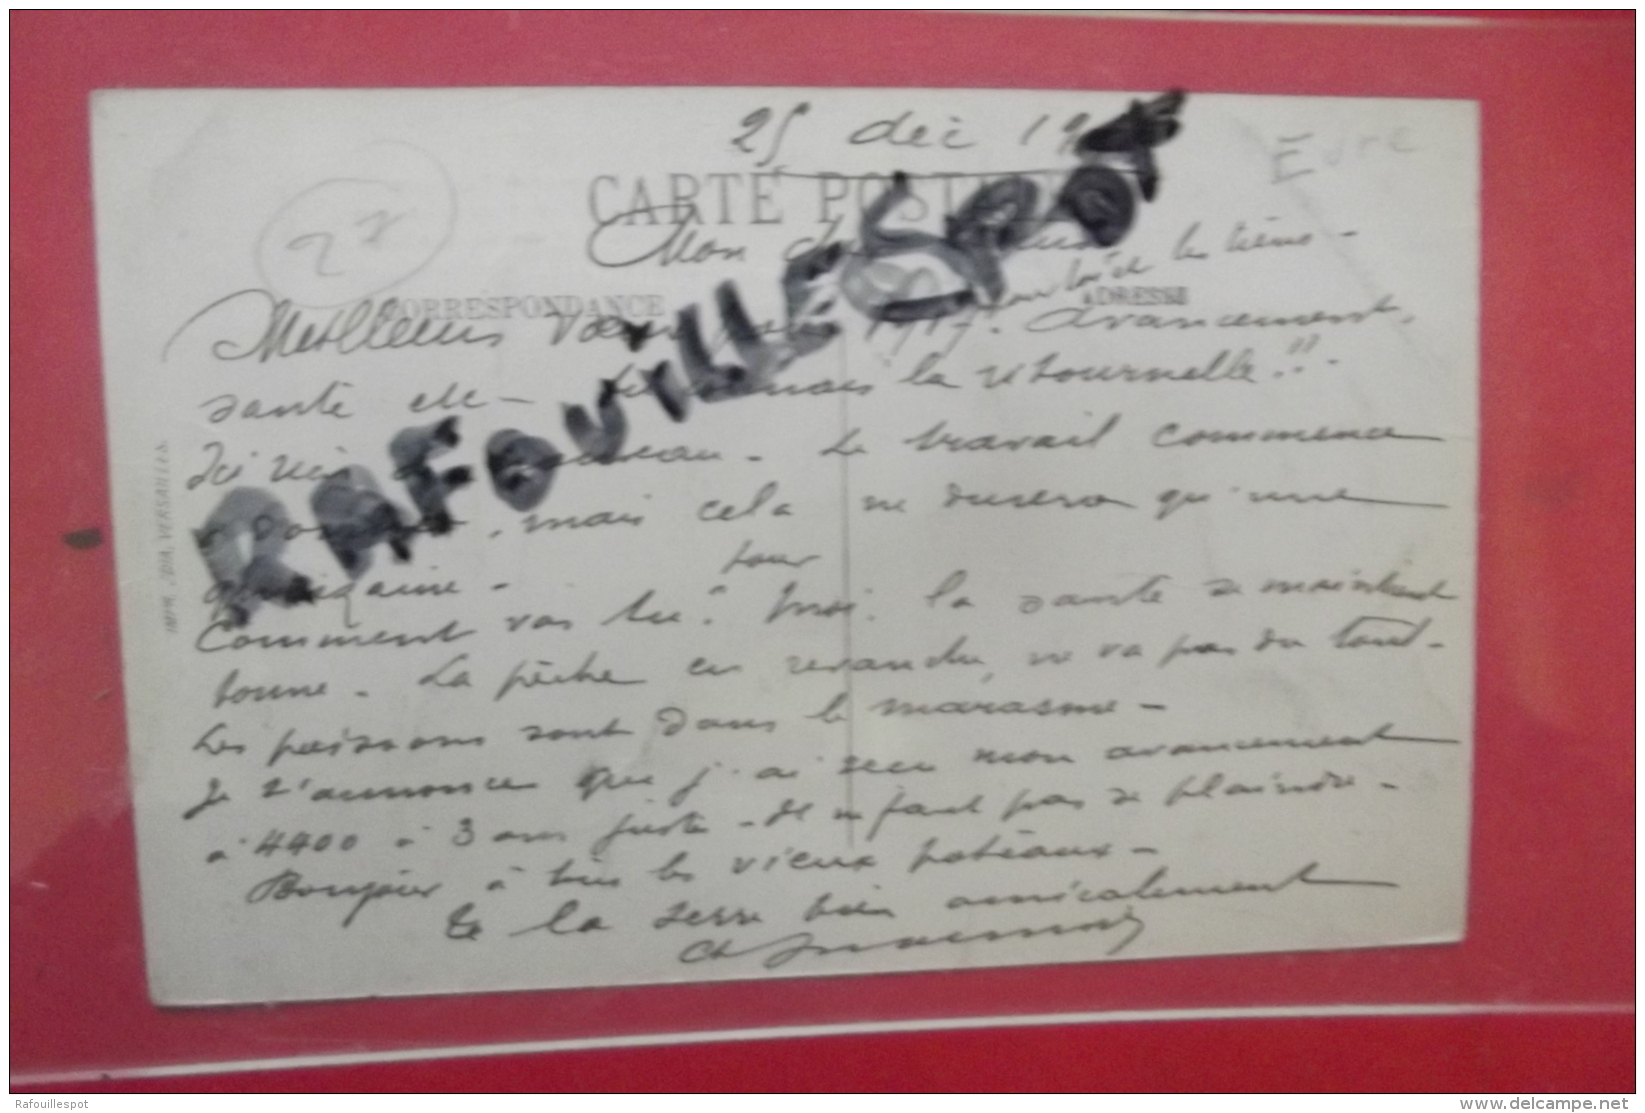 25 déc 19
Eure
CARTE POST
27
Mon
pour toi et les tiens -
CORRESPONDANCE
ADRESSE
Meilleurs Vœux 1917. Avancement,
santé etc - mais la ritournelle!! -
RAFOUILLESPOT
Ici rien de nouveau - Le travail commence
à , mais cela ne durera qu'une
quinzaine -
Comment vas tu? Pour moi, la santé est maintenant
bonne - La pêche en revanche, ne va pas du tout -
Les poissons sont dans le marasme -
Je t'annonce que j'ai reçu mon avancement
à 4400 à 3 ans juste - Il n faut pas se plaindre -
Bonjour à tous les vieux poteaux -
Je te la serre bien amicalement
Ch
IMP. VERSAILLES
Rafouillespot
www.delcampe.net